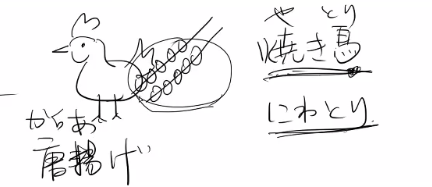 やとり
焼き鳥
にわとり
からあ
唐揚げ